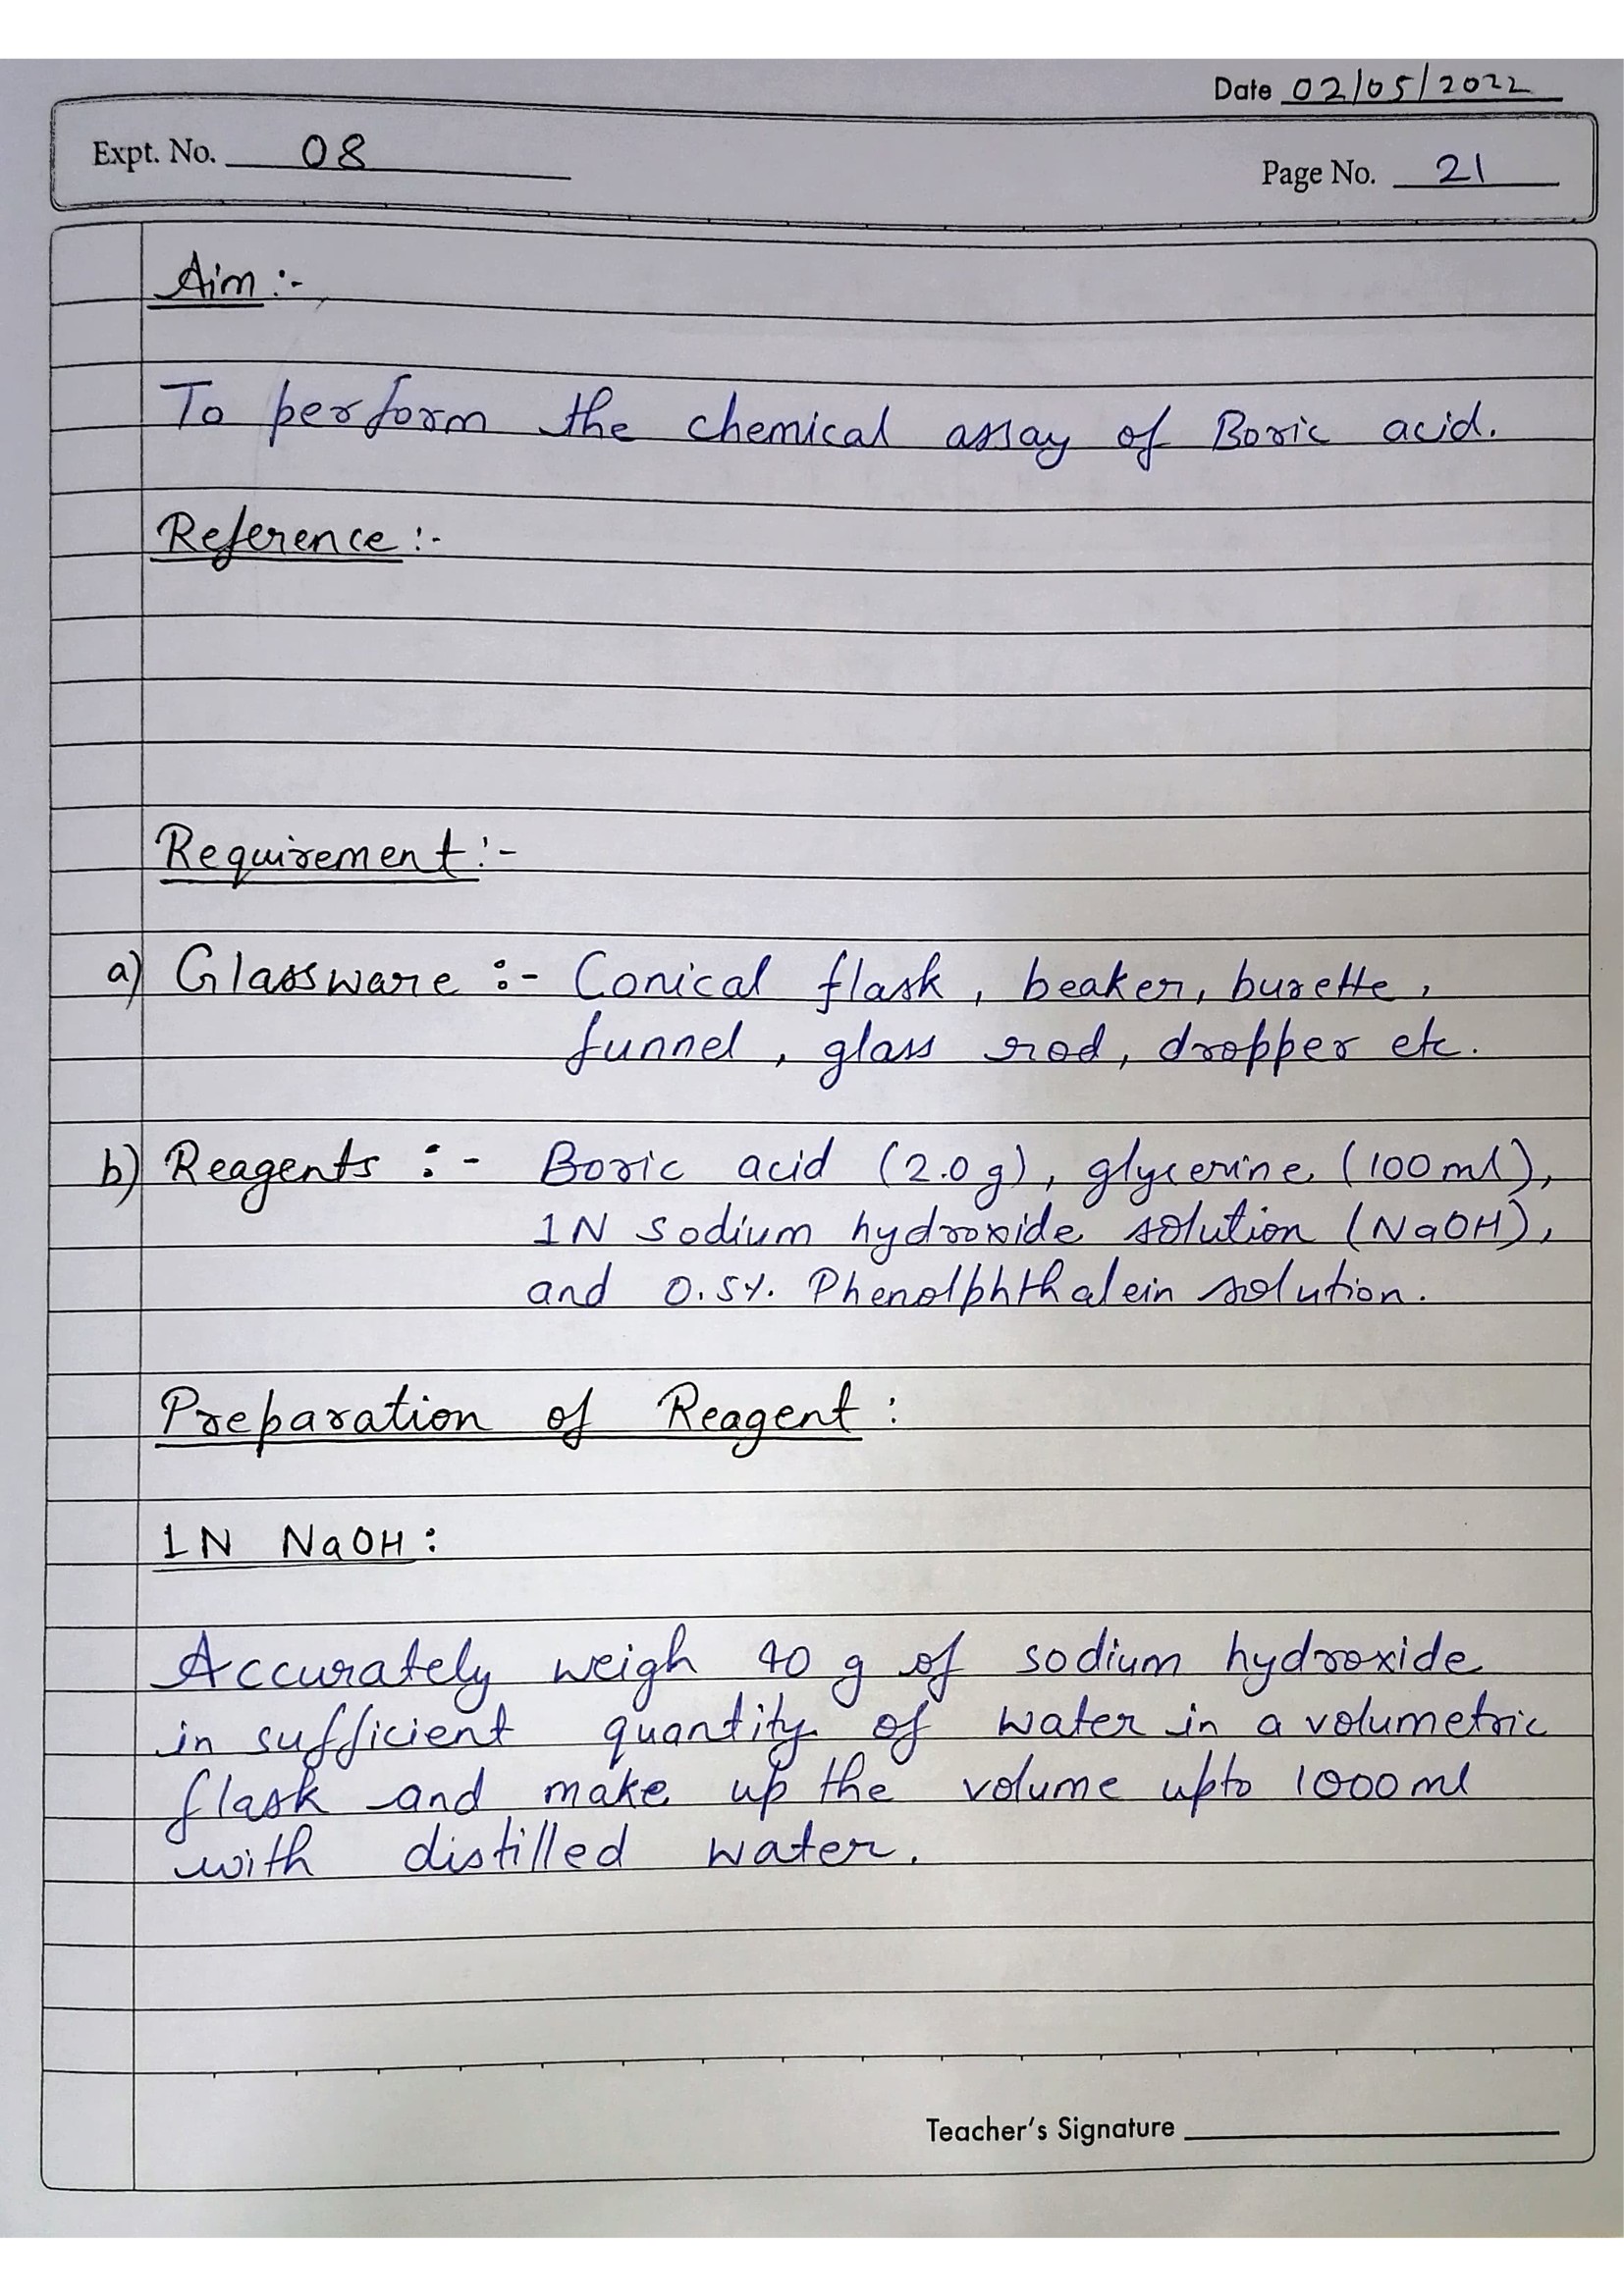 Date 02/05/2022
Expt. No. 08
Page No. 21
Aim :-
To perform the chemical assay of Boric acid.
Reference :-
Requirement :-
a) Glassware :- Conical flask, beaker, burette,
funnel, glass rod, dropper etc.
b) Reagents :- Boric acid (2.0g), glycerine (100ml),
1N Sodium hydroxide solution (NaOH),
and 0.5%. Phenolphthalein solution.
Preparation of Reagent :
1N NaOH :
Accurately weigh 40 g of sodium hydroxide
in sufficient quantity of water in a volumetric
flask and make up the volume upto 1000ml
with distilled water.
Teacher's Signature